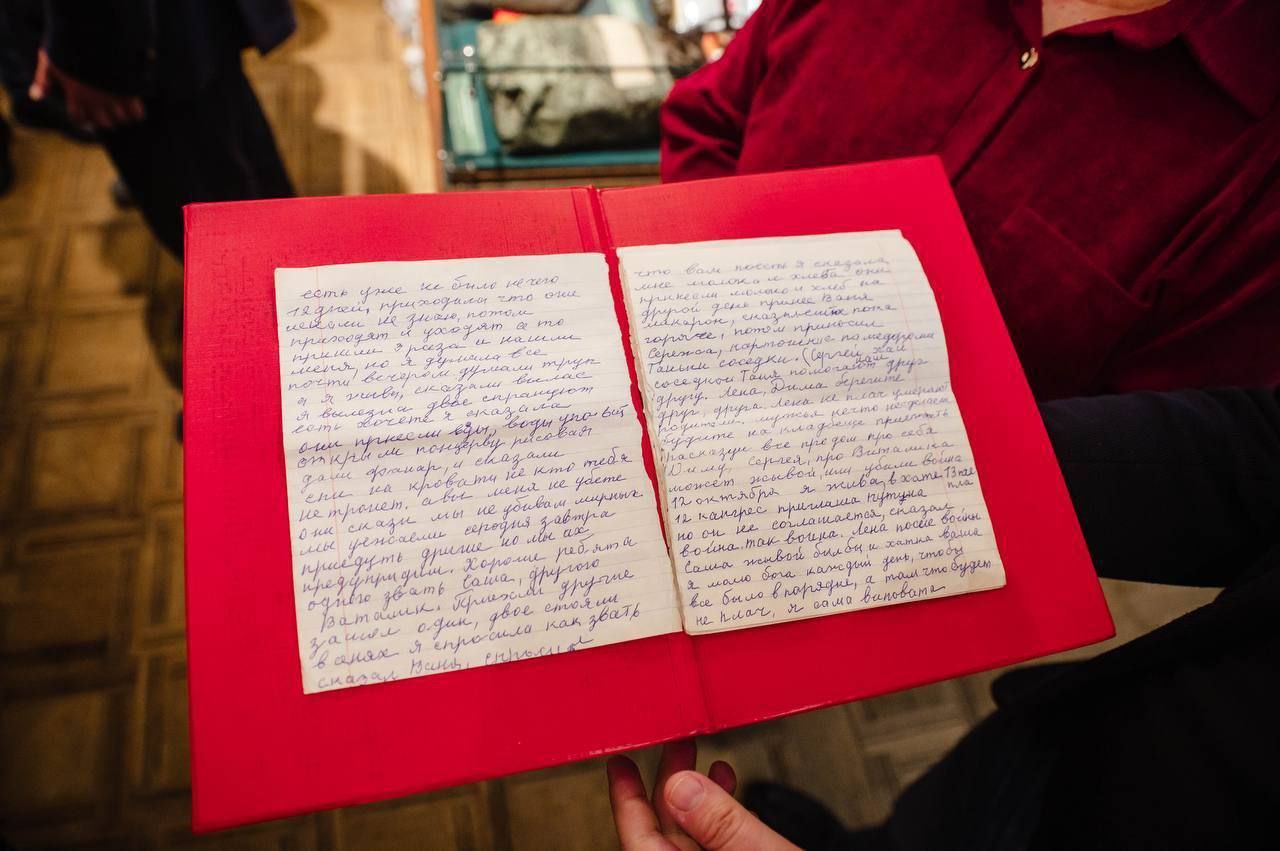 есть уже не было нечего
12 дней, приходили что они
искали не знаю, потом
приходят и уходят а то
пришли 3 раза и нашли
меня, но я думала все
почти вечером думали труп
а я живу, сказали вылас
я вылезла двое спрашуют
есть хочете я сказала
они принесли еды, воды
открыли консерву рисовая
дали фонар, и сказали
спи на кровати не кто тебя
не тронет. а вы меня не убьете
они сказали мы не убивам мирных
мы уезжаем сегодня завтра
приедуть другие но мы их
предупридим. Хороше ребята
одного звать Саша, другого
Виталик. Приехали другие
зашел один, двое стояли
в сенях я спросила как звать
сказал Ваня, спросил
что вам поесть я сказала
мне молока и хлеба они
принесли молоко и хлеб на
другой день принес Ваня
макарон, сказал ешь пока
горяче, потом приносил
Сережа, картошку помедорчики
Таньки соседки. (Сергей
соседкой Таня помогают друг
другу. Лена, Дима берегите
друг, друга. Лена не плач умерают
родители, мужья нечто не
будите на кладбеще приезжать
расказуй все про дом про себя
Диму, Сергея, про Виталика
может жывой, или убили война
12 октября я жива, в хате
12 кангрес приглаша Путуна
но он не соглашается, сказал
война так война. Лена после войны
Саша жывой был бы и хатка ваша
я молю бога каждый день, чтобы
все было в парядке, а там что будет
не плач, я сама виновата